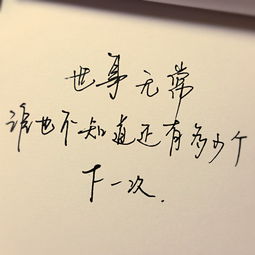 世事无常
谁也不知道还有多少个
下一次.